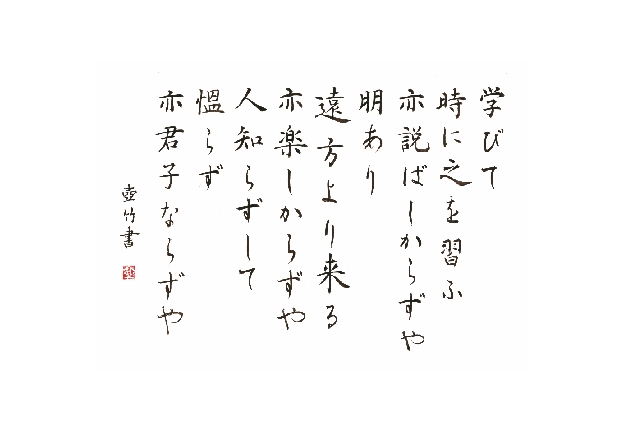 学びて
時に之を習ふ
亦説ばしからずや
明あり
遠方より来る
亦楽しからずや
人知らずして
慍らず
亦君子ならずや
壺竹書